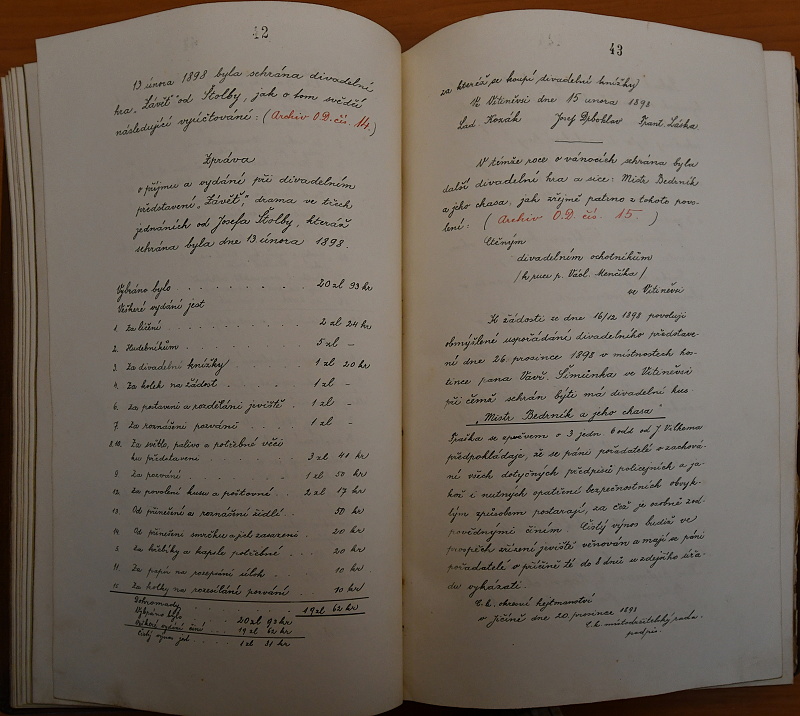 42
13 února 1898 byla sehrána divadelní
hra „Závěť" od Štolby, jak o tom svědčí
následující vyúčtování: (Archiv O.D. čís. 14.)
Zpráva
o příjmu a vydání při divadelním
představení „Závěť", drama ve třech
jednáních od Josefa Štolby, kteráž
sehrána byla dne 13 února 1898.
Vybráno bylo . . . . . . 20 zl 93 kr
Veškeré vydání jest
1. Za líčení . . . . . . 2 zl 24 kr
2. Hudebníkům . . . . . 5 zl –
3. Za divadelní knížky . . . 1 zl 20 kr
4. Za kolek na žádost . . . 1 zl –
6. Za postavení a rozdělání jeviště . 1 zl –
7. Za roznášení pozvání . . . 1 zl –
8.10. Za světlo, palivo a potřebné věci
ku představení . . . . 3 zl 41 kr
9. Za pozvání . . . . . 1 zl 50 kr
12. Za povolení kusu a poštovné . . 2 zl 17 kr
13. Od přinešení a roznášení židlí . . 50 kr
14. Od přinešení smrčků a jel zasazení . 20 kr
5. Za hřebíky a kapsle potřebné . . 20 kr
11. Za papír na rozepsání úloh . . 10 kr
15. Za kolky na rozesílání pozvání . . 10 kr
Dohromady . . . . 19 zl 62 kr
Vybráno bylo 20 zl 93 kr
Veškeré vydání činí . 19 zl 62 kr
Čistý výnos jest . . 1 zl 31 kr
43
za kteréž se koupí divadelní knížky)
V Vitiněvsi dne 15 února 1898
Lad. Kozák Josef Drboklav Frant. Láska
V témže roce o vánocích sehrána byla
další divadelní hra a sice: Mistr Bedrník
a jeho chasa, jak zřejmě patrno z tohoto povo-
lení: (Archiv O.D. čís. 15.)
Ctěným
divadelním ochotníkům
/ k ruce p. Václ. Menčíka /
ve Vitiněvsi
K žádosti ze dne 16/12 1898 povoluji
obmýšlené uspořádání divadelního představe-
ní dne 26. prosince 1898 v místnostech hos-
tince pana Vavř. Šimůnka ve Vitiněvsi
při čemž sehrán býti má divadelní kus
„Mistr Bedrník a jeho chasa"
Fraška se zpěvem o 3 jedn. 6 odd od J. Vilhema
předpokládaje, že se páni pořadatelé o zachová-
ní všech dotyčných předpisů policejních a ja-
kož i nutných opatření bezpečnostních obvyk-
lým způsobem postarají, za což je osobně zod-
povědnými činím. Čistý výnos budiž ve
prospěch zřízení jeviště věnován a mají se páni
pořadatelé o příčině té do 8 dnů u zdejšího úřa-
du vykázati.
C. k. okresní hejtmanství
v Jičíně dne 20 prosince 1898
C. k. místodržitelský rada.
podpis.